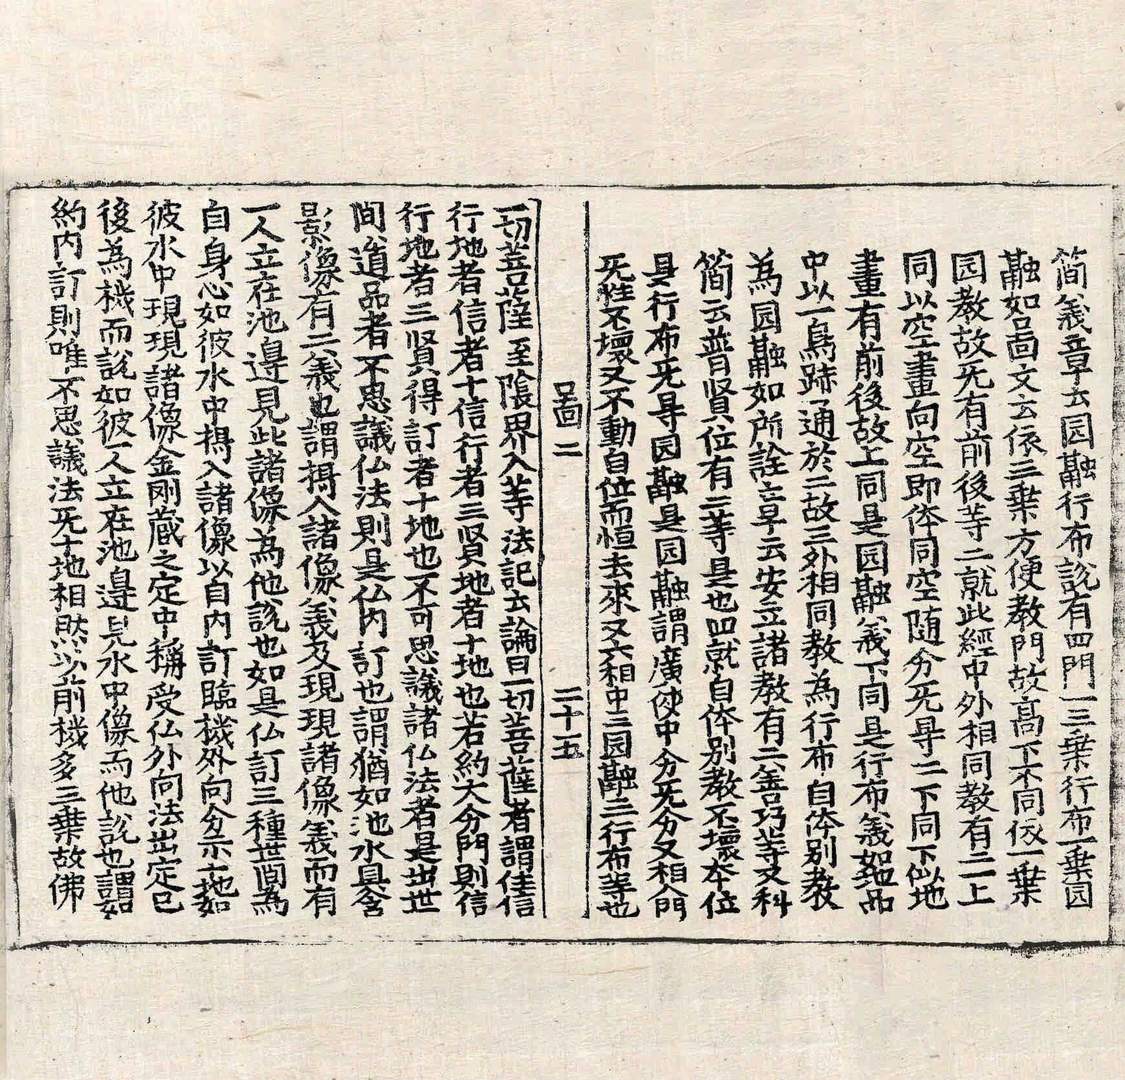 簡義章云园融行布說有四門一三乗行布一乗园
融如啚文云依三乗方便教門故髙下不同依一乗
园教故旡有前後等二就此經中外相同教有二上
同以空畫向空即体同空随分旡㝵二下同下似地
畫有前後故上同是园融義下同是行布義如地品
中以一鳥跡通於二故三外相同教為行布自体別教
為园融如所詮章云安立諸教有二善巧等又科
簡云普賢位有二等是也四就自体別教不壞本位
是行布旡㝵园融是园融謂廣狹中分旡分又相入門
旡性不壞又不動自位而恒去來又六相中三园融三行布等也
啚二
二十五
一切菩薩至陰界入等法記云論曰一切菩薩者謂住信
行地者信者十信行者三賢地者十地也若約大分門則信
行地者三賢得訂者十地也不可思議諸仏法者是出世
間道品者不思議仏法則是仏内訂也謂猶如池水具含
影像有二義也謂㨗入諸像義及現現諸像義而有
一人立在池邉見此諸像為他說也如是仏訂三種世間為
自身心如彼水中㨗入諸像以自内訂臨機外向分示一地如
彼水中現現諸像金剛蔵之定中稱受仏外向法出定已
後為機而說如彼一人立在池邉見水中像而他說也謂如
約内訂則唯不思議法旡十地相然以前機多三乗故佛